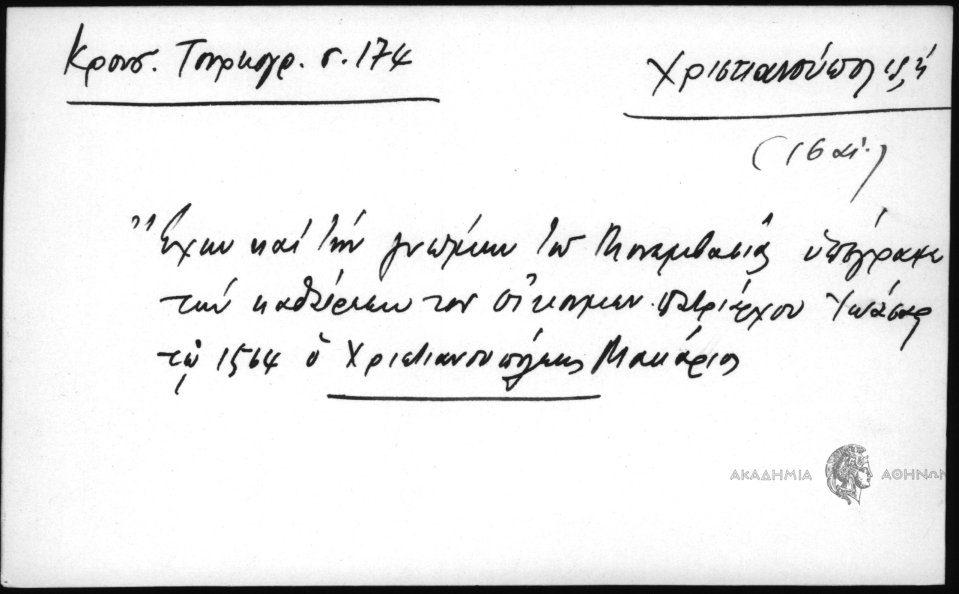 Κρουσ. Τουρκογρ. σ. 174
Χριστιανούπολις, ἡ
(16 αἰ.)
"Ἔχων καὶ τὴν γνώμην τοῦ Μονεμβασίας ὑπέγραψε
τὴν καθαίρεσιν τοῦ οἰκουμεν. πατριάρχου Ἰωάσαφ
τῷ 1564 ὁ Χριστιανουπόλεως Μακάριος
ΑΚΑΔΗΜΙΑ ΑΘΗΝΩΝ